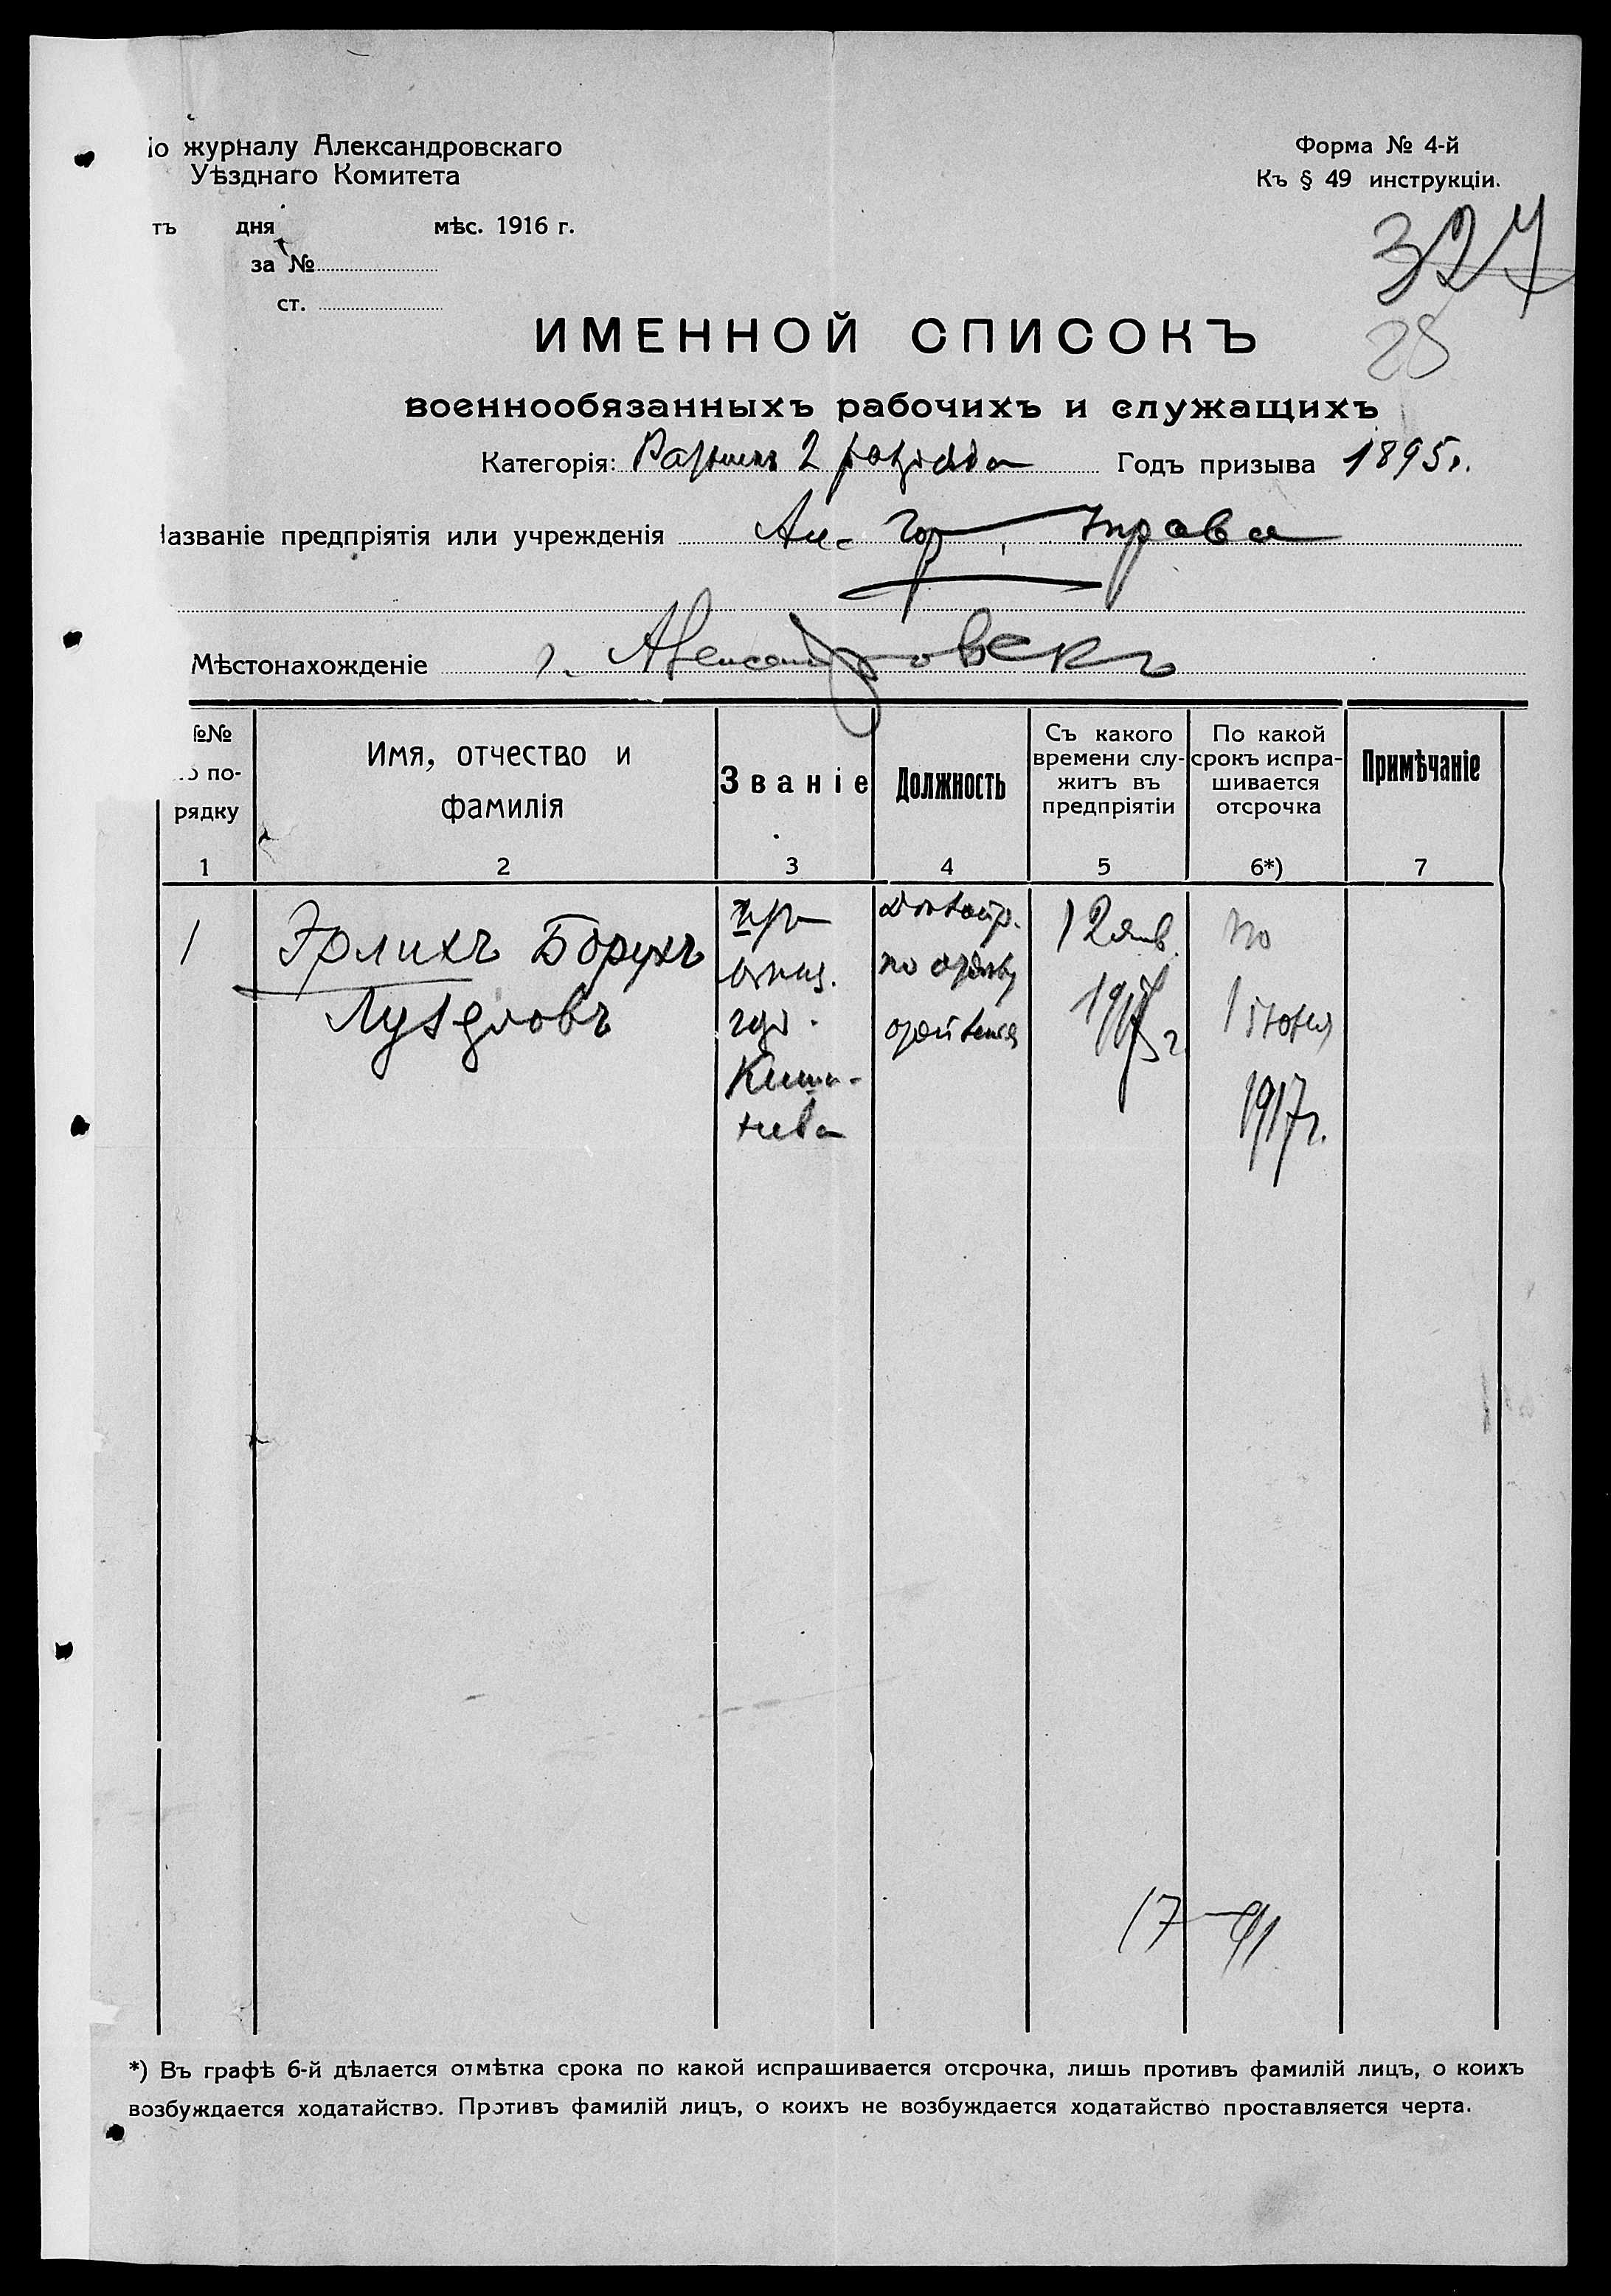 іо журналу Александровскаго
Уѣзднаго Комитета
тъ дня мѣс. 1916 г.
за №
ст.
Форма № 4-й
Къ § 49 инструкціи.
327
28
ИМЕННОЙ СПИСОКЪ
военнообязанныхъ рабочихъ и служащихъ
Категорія: 2 разряда Годъ призыва 1895г.
Названіе предпріятія или учрежденія Ал. Гор. Управа
Мѣстонахожденіе г. Александровскъ
№№ по по- рядку
Имя, отчество и фамилія
Званіе
Должность
Съ какого времени слу- житъ въ предпріятіи
По какой срокъ испра- шивается отсрочка
Примѣчаніе
1 2 3 4 5 6*) 7
1
Эрлихъ Борухъ
гор.
Киши-
нева
по
12 янв.
по
1 іюня
1917г.
17
*) Въ графѣ 6-й дѣлается отмѣтка срока по какой испрашивается отсрочка, лишь противъ фамилій лицъ, о коихъ
возбуждается ходатайство. Противъ фамилій лицъ, о коихъ не возбуждается ходатайство проставляется черта.